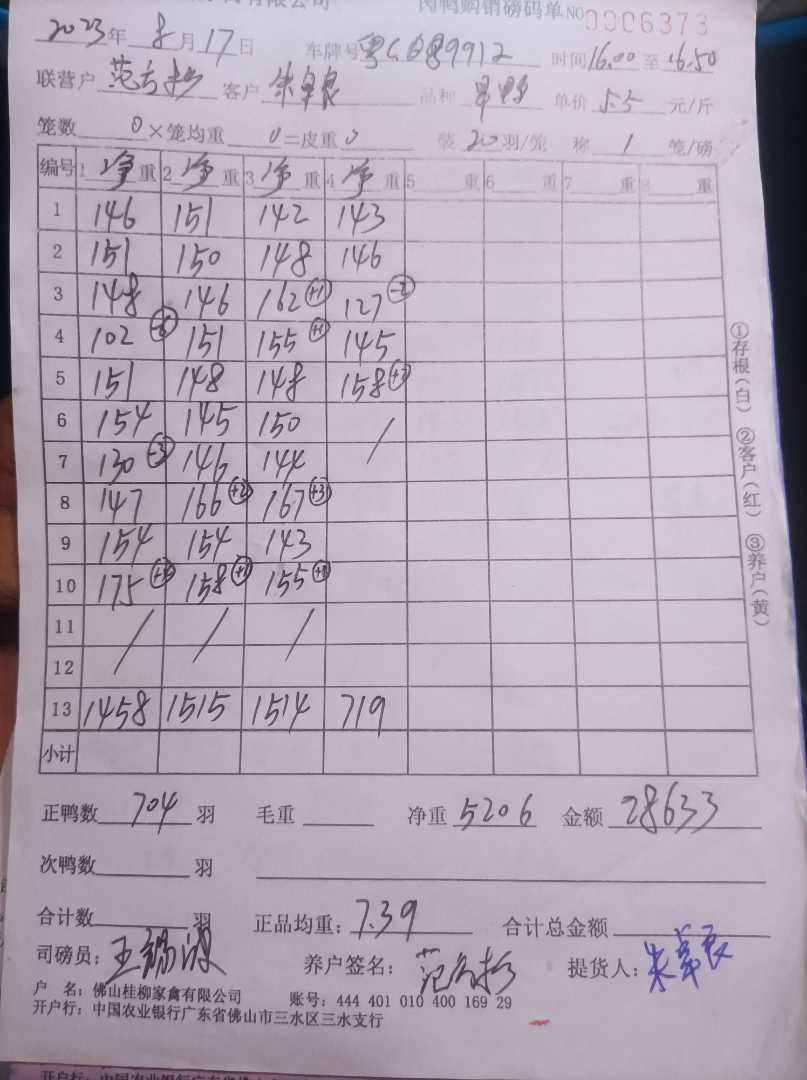 有限公司 肉鸭购销磅码单 NO 0006373
2023年 8月17日 车牌号 粤C089912 时间 16:00 至 16:50
联营户 客户 品种 单价 5.5 元/斤
笼数 0 ×笼均重 0 =皮重 0 装 20 羽/笼 称 1 笼/磅
编号 1 净 重 2 净 重 3 净 重 4 净 重 5 重 6 重 7 重 8 重
1 146 151 142 143
2 151 150 148 146
3 148 146 162 +1 127 -2
4 102 -6 151 155 +1 145
5 151 148 148 158
6 154 145 150 /
7 130 146 144
8 147 166 +2 167 +3
9 154 154 143
10 175 158 +1 155
11 / / /
12
13 1458 1515 1514 719
小计
正鸭数 704 羽 毛重 净重 5206 金额 28633
次鸭数 羽
合计数 羽 正品均重: 7.39 合计总金额
司磅员: 养户签名: 提货人:
户 名: 佛山桂柳家禽有限公司 账号: 444 401 010 400 169 29
开户行: 中国农业银行广东省佛山市三水区三水支行
①存根(白) ②客户(红) ③养户(黄)
开户行: 中国农业银行广东省佛山市三